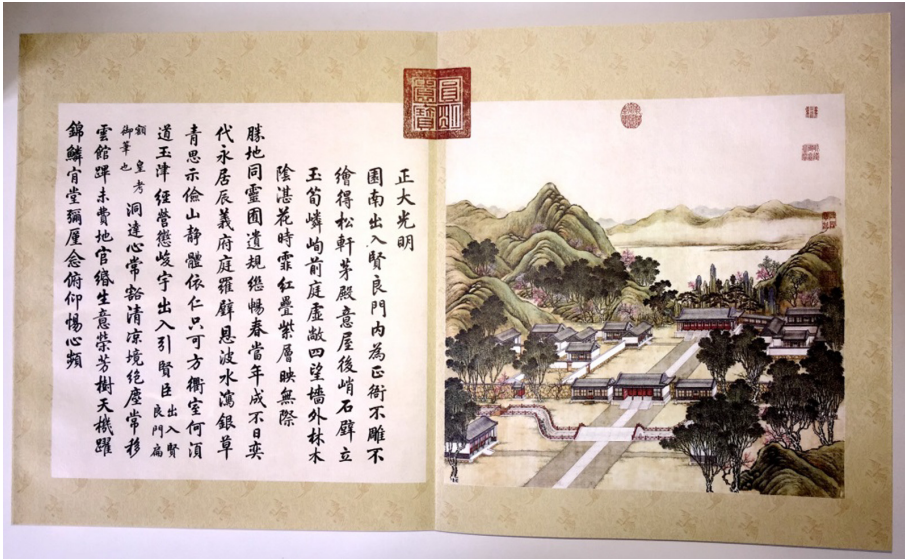 圓明園寶
正大光明
園南出入賢良門内為正衙不雕不
繪得松軒茅殿意屋後峭石壁立
玉筍嶙峋前庭虛敞四望墻外林木
陰湛花時霏紅疊紫層映無際
勝地同靈囿遺規繼暢春當年成不日奕
代永居辰義府庭羅壁恩波水瀉銀草
青思示儉山静體依仁只可方衢室何湏
道玉津經營懲峻宇出入引賢臣出入賢良門扁
額皇考御筆也洞達心常豁清凉境絶塵常移
雲館蹕未費地官緡生意榮芳樹天機躍
錦鱗肯堂彌厪念俯仰惕心頻